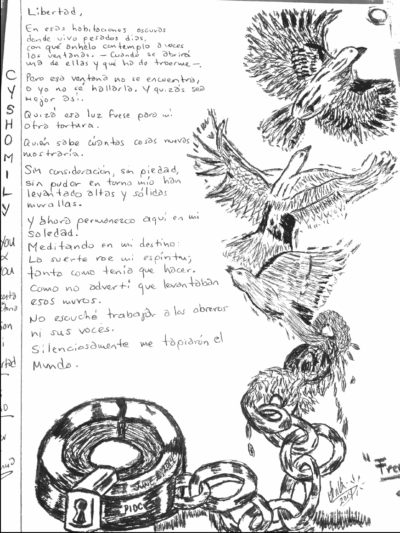 Libertad,
En esas habitaciones oscuras
donde vivo pesados días,
con qué anhelo contemplo a veces
las ventanas. – Cuándo se abrirá
una de ellas y qué ha de traerme –.
Pero esa ventana no se encuentra,
o yo no sé hallarla. Y quizás sea
mejor así.
Quizá esa luz fuese para mi
otra tortura.
Quién sabe cuántas cosas nuevas
mostraría.
Sin consideración, sin piedad,
sin pudor en torno mío han
levantado altas y sólidas
murallas.
Y ahora permanezco aquí en mi
soledad.
Meditando en mi destino:
La suerte roe mi espíritu;
tanto como tenía que hacer.
Como no advertí que levantaban
esos muros.
No escuché trabajar a los obreros
ni sus voces.
Silenciosamente me tapiaron el
Mundo.
CYSHOMILY
you
you
JUNE
PIDCE